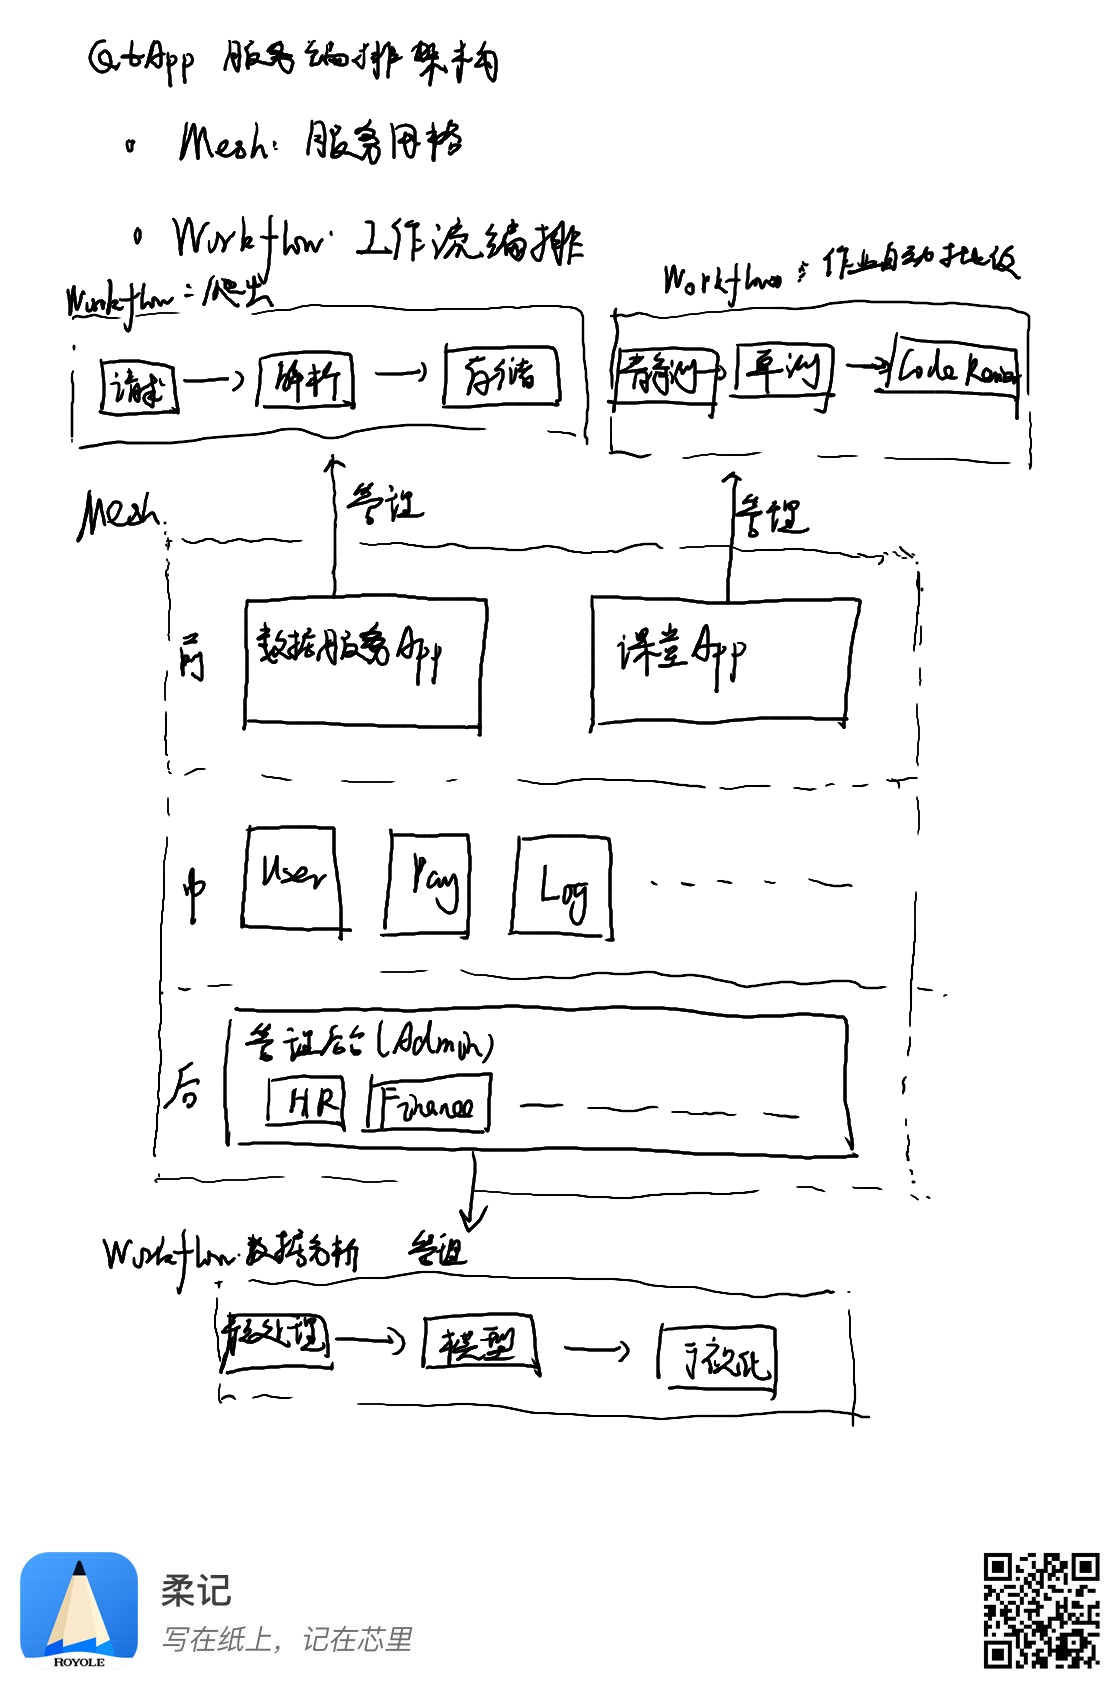 QtApp 服务编排架构
Mesh: 服务网格
Workflow: 工作流编排
Workflow:
Workflow: 作业自动批改
请求
解析
存储
单测
Code Review
Mesh
管理
管理
前
数据服务App
课堂App
中
User
Pay
Log
后
管理后台(Admin)
HR
Finance
Workflow: 数据分析
管理
预处理
模型
可视化
柔记
写在纸上，记在芯里
ROYOLE